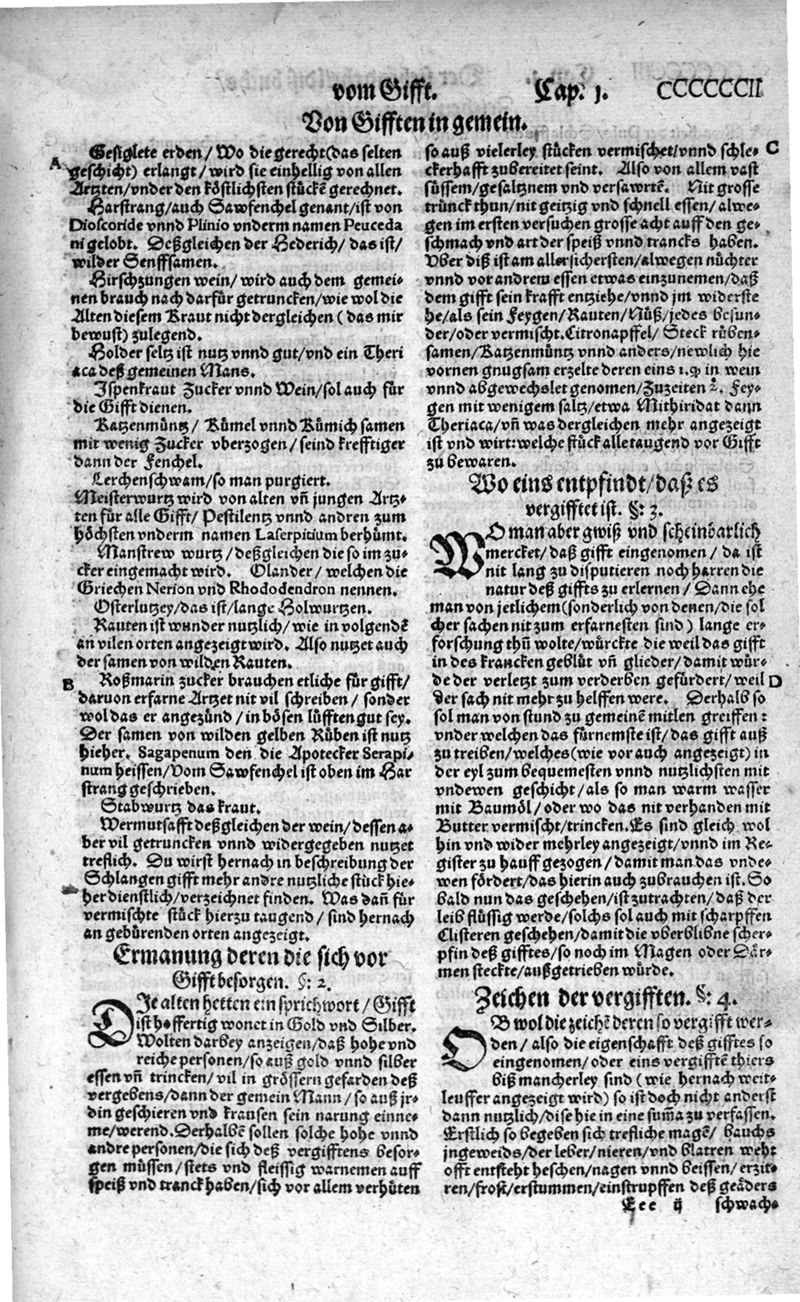 vom Gifft. Cap. 1. CCCCCCII
Von Gifften in gemein.
A
Gesiglete erden/ Wo die gerecht (das selten
geschicht) erlangt/ wird sie einhellig von allen
Artzten/ vnder den köstlichsten stückē gerechnet.
Harstrang/ auch Sawfenchel genant/ ist von
Dioscoride vnnd Plinio vnderm namen Peuceda
ni gelobt. Deßgleichen der Hederich/ das ist/
wilder Senffsamen.
Hirschzungen wein/ wird auch dem gemei-
nen brauch nach darfür getruncken/ wie wol die
Alten diesem Kraut nicht dergleichen (das mir
bewust) zulegend.
Holder seltz ist nutz vnnd gut/ vnd ein Theri
aca deß gemeinen Mans.
Ispenkraut Zucker vnnd Wein/ sol auch für
die Gifft dienen.
Katzenmüntz/ Kümel vnnd Kümich samen
mit wenig Zucker vberzogen/ seind krefftiger
dann der Fenchel.
Lerchenschwam/ so man purgiert.
Meisterwurtz wird von alten vñ jungen Artz-
ten für alle Gifft/ Pestilentz vnnd andren zum
höchsten vnderm namen Laserpitium berhümt.
Manstrew wurtz/ deßgleichen die so im zu-
cker eingemacht wird. Olander/ welchen die
Griechen Nerion vnd Rhododendron nennen.
Osterlutzey/ das ist/ lange Holwurtzen.
Rauten ist wunder nutzlich/ wie in volgendē
an vilen orten angezeigt wird. Also nutzet auch
der samen von wilden Rauten.
B
Roßmarin zucker brauchen etliche für gifft/
daruon erfarne Artzet nit vil schreiben/ sonder
wol das er angezünd/ in bösen lüfften gut sey.
Der samen von wilden gelben Rüben ist nutz
hieher. Sagapenum den die Apotecker Serapi-
num heissen/ Vom Sawfenchel ist oben im Har
strang geschrieben.
Stabwurtz das kraut.
Wermutsafft deßgleichen der wein/ dessen a-
ber vil getruncken vnnd widergegeben nutzet
treflich. Du wirst hernach in beschreibung der
Schlangen gifft mehr andre nutzliche stück hie-
her dienstlich/ verzeichnet finden. Was dañ für
vermischte stück hierzu taugend/ sind hernach
an gebürenden orten angezeigt.
Ermanung deren die sich vor
Gifft besorgen. §: 2.
DIe alten hetten ein sprichwort/ Gifft
ist hoffertig wonet in Gold vnd Silber.
Wolten darbey anzeigen/ daß hohe vnd
reiche personen/ so auß gold vnnd silber
essen vñ trincken/ vil in grössern gefarden deß
vergebens/ dann der gemein Mann/ so auß jr-
din geschieren vnd krausen sein narung einne-
me/ werend. Derhalbē sollen solche hohe vnnd
andre personen/ die sich deß vergifftens besor-
gen müssen/ stets vnd fleissig warnemen auff
speiß vnd tranck haben/ sich vor allem verhüten
C
so auß vielerley stücken vermischet/ vnnd schle-
ckerhafft zubereitet seint. Also von allem vast
süssem/ gesaltznem vnd versawrtē. Nit grosse
trünck thun/ nit geitzig vnd schnell essen/ alwe-
gen im ersten versuchen grosse acht auff den ge-
schmach vnd art der speiß vnd trancks haben.
Vber diß ist am aller sichersten/ alwegen nüchter
vnnd vor andrem essen etwas einzunemen/ daß
dem gifft sein krafft entziehe/ vnnd jm widerste
he/ als sein Feygen/ Rauten/ Nüß/ jedes besun-
der/ oder vermischt. Citronapffel/ Steck rüben-
samen/ Katzenmüntz vnnd anders/ newlich hie
vornen gnugsam erzelte deren eins 1. q in wein
vnnd abgewechslet genomen/ Zuzeiten 2. Fey-
gen mit wenigem saltz/ etwa Mithiridat dann
Theriaca/ vñ was dergleichen mehr angezeigt
ist vnd wirt: welche stück alle taugend vor Gifft
zu bewaren.
Wo eins entpfindt/ daß es
vergifftet ist. §: 3.
WO man aber gwiß vnd scheinbarlich
mercket/ daß gifft eingenomen/ da ist
nit lang zu disputieren noch harren die
natur deß giffts zu erlernen/ Dann ehe
man von jetlichem (sonderlich von denen/ die sol
cher sachen nit zum erfarnesten sind) lange er-
forschung thũ wolte/ würckte die weil das gifft
in des krancken geblüt vñ glieder/ damit wür-
de der verletzt zum verderben gefürdert/ weil
D
der sach nit mehr zu helffen were. Derhalb so
sol man von stund zu gemeinē mitlen greiffen:
vnder welchen das fürnemste ist/ das gifft auß
zu treiben/ welches (wie vor auch angezeigt) in
der eyl zum bequemesten vnnd nutzlichsten mit
vndewen geschicht/ als so man warm wasser
mit Baumöl/ oder wo das nit verhanden mit
Butter vermischt/ trincken. Es sind gleich wol
hin vnd wider mehrley angezeigt/ vnnd im Re-
gister zu hauff gezogen/ damit man das vnde-
wen fördert/ das hierin auch zubrauchen ist. So
bald nun das geschehen/ ist zutrachten/ daß der
leib flüssig werde/ solchs sol auch mit scharpffen
Clisteren geschehen/ damit die vberblibne scher-
pfin deß gifftes/ so noch im Magen oder Där-
men steckte/ außgetrieben würde.
Zeichen der vergifften. §: 4.
OB wol die zeichē deren so vergifft wer-
den/ also die eigenschafft deß gifftes so
eingenomen/ oder eins vergifftē thiers
biß mancherley sind (wie hernach weit-
leuffer angezeigt wird) so ist doch nicht anderst
dann nutzlich/ dise hie in eine sum̃a zu verfassen.
Erstlich so begeben sich trefliche magē/ bauchs
jngeweids/ der leber/ nieren/ vnd blatren weht
offt entsteht heschen/ nagen vnnd beissen/ erzit-
ren/ frost/ erstummen/ einstrupffen deß geäders
Eee ij schwach-